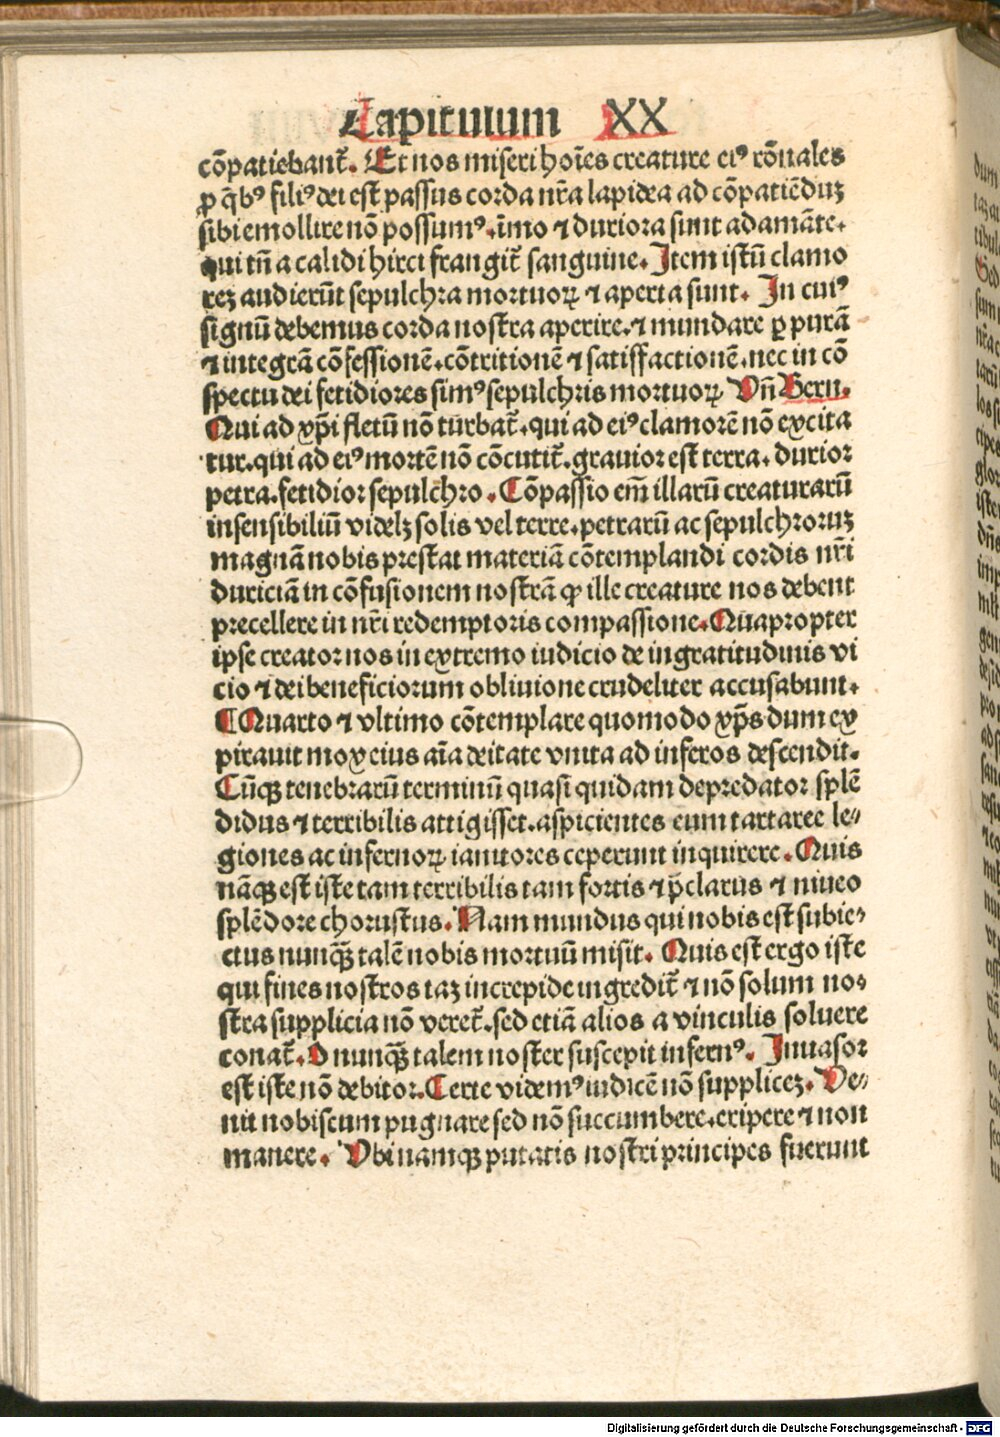 Capitulum XX
cōpatiebant᷑. Et nos miseri hoīes creature eiꝰ rōnales
ꝓ q̄bꝰ filiꝰ dei est passus corda nr̄a lapidea ad cōpatiēduꝫ
sibi emollire nō possumꝰ. īmo ⁊ duriora sunt adamāte.
qui tn̄ a calidi hirci frangit᷑ sanguine. Item istū clamo
reꝫ audierūt sepulchra mortuoꝝ ⁊ aperta sunt. In cuiꝰ
signū debemus corda nostra aperire. ⁊ mundare ꝑ purā
⁊ integrā cōfessionē. cōtritionē ⁊ satisfactionē. nec in cō
spectu dei fetidiores simꝰ sepulchris mortuoꝝ. Vn̄ Bern.
Qui ad xp̄i fletū nō turbat᷑. qui ad eiꝰ clamorē nō excita
tur. qui ad eiꝰ mortē nō cōcutit᷑. grauior est terra. durior
petra. fetidior sepulchro. Cōpassio em̄ illarū creaturarū
insensibiliū videlꝫ solis vel terre. petrarū ac sepulchroruꝫ
magnā nobis prestat materiā cōtemplandi cordis nr̄i
duriciā in cōfusionem nostrā ꝙ ille creature nos debent
precellere in nr̄i redemptoris compassione. Quapropter
ipse creator nos in extremo iudicio de ingratitudinis vi
cio ⁊ dei beneficiorum obliuione crudeliter accusabunt.
¶Quarto ⁊ vltimo cōtemplare quomodo xp̄s dum ex
pirauit mox eius aīa deitate vnita ad inferos descendit.
Cūqꝫ tenebrarū terminū quasi quidam depredator splē
didus ⁊ terribilis attigisset. aspicientes eum tartaree le⸗
giones ac infernoꝝ ianitores ceperunt inquirere. Quis
nāqꝫ est iste tam terribilis tam fortis ⁊ p̄clarus ⁊ niueo
splēdore chorustus. Nam mundus qui nobis est subie⸗
ctus nunqꝫ̄ talē nobis mortuū misit. Quis est ergo iste
qui fines nostros taꝫ increpide ingredit᷑ ⁊ nō solum no⸗
stra supplicia nō veret᷑. sed etiā alios a vinculis soluere
conat᷑. O nunqꝫ̄ talem noster suscepit infernꝰ. Inuasor
est iste nō debitor. Certe videmꝰ iudicē nō suppliceꝫ. Ve⸗
nit nobiscum pugnare sed nō succumbere. eripere ⁊ non
manere. Vbi namqꝫ putatis nostri principes fuerunt
Digitalisierung gefördert durch die Deutsche Forschungsgemeinschaft - DFG